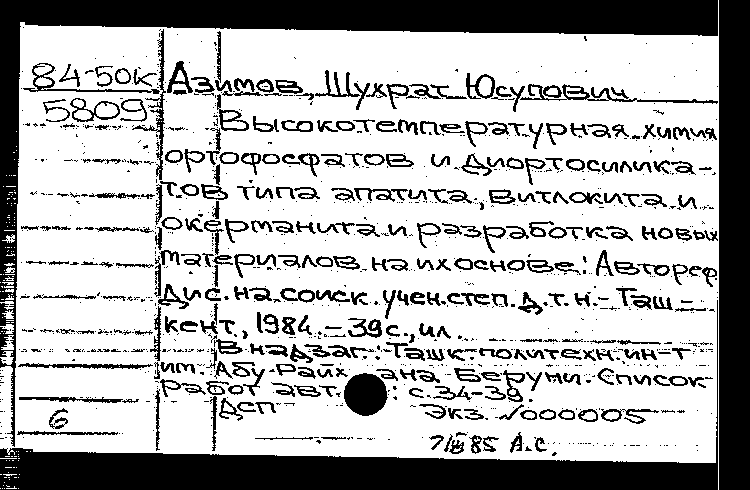 84-50к Азимов, Шухрат Юсупович
5809
Высокотемпературная химия
ортофосфатов и диортосилика-
тов типа апатита, витлокита и
окерманита и разработка новых
материалов на их основе: Автореф
Дис. на соиск. учен. степ. д.т.н. - Таш-
кент, 1984. - 39 с., ил.
В надзаг.: Ташк. политехн. ин-т
им. Абу Райх ана Беруни. Список
работ авт. : с. 34-39.
6 ДСП Экз. №000005
7/III 85 А.С.